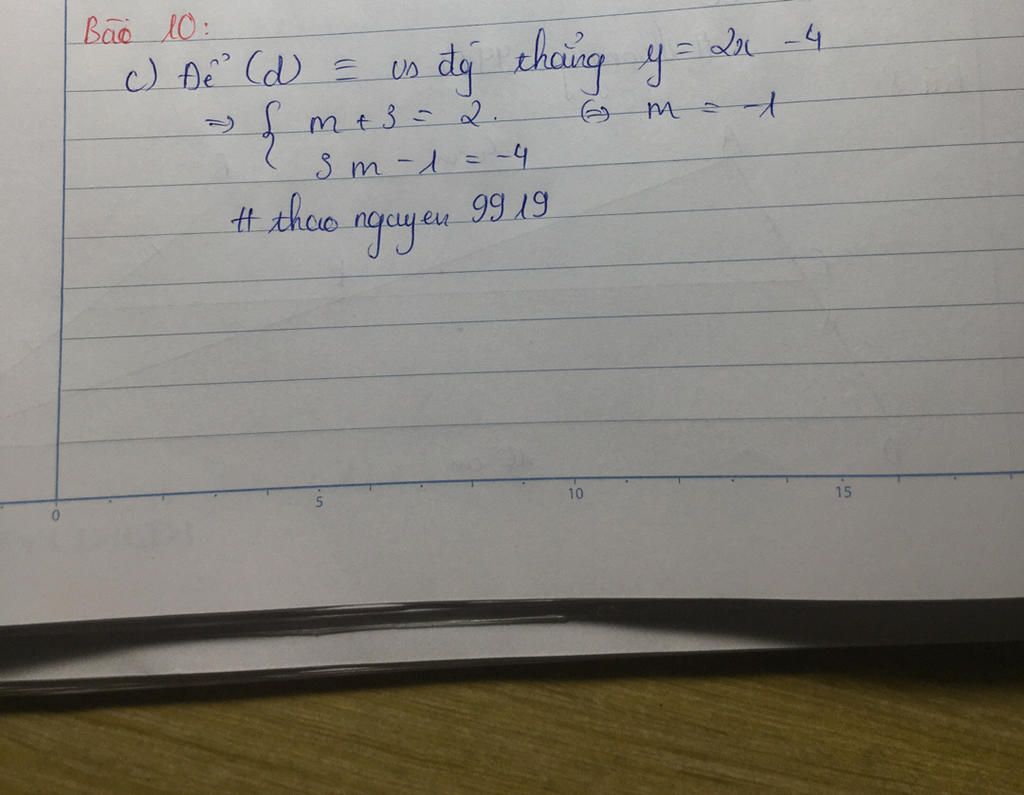 Bài 10:
c) Để (d) ≡ vs đg thẳng y = 2x - 4
⇒ { m + 3 = 2. ⇔ m = -1
3m - 1 = -4
# thao nguyen 9919
0 5 10 15